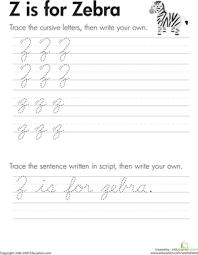 Z is for Zebra
Trace the cursive letters, then write your own.
Z Z Z
Z Z Z
z z z
z z z
Trace the sentence written in script, then write your own.
Z is for zebra.
Created by:
education.com
www.education.com/worksheets